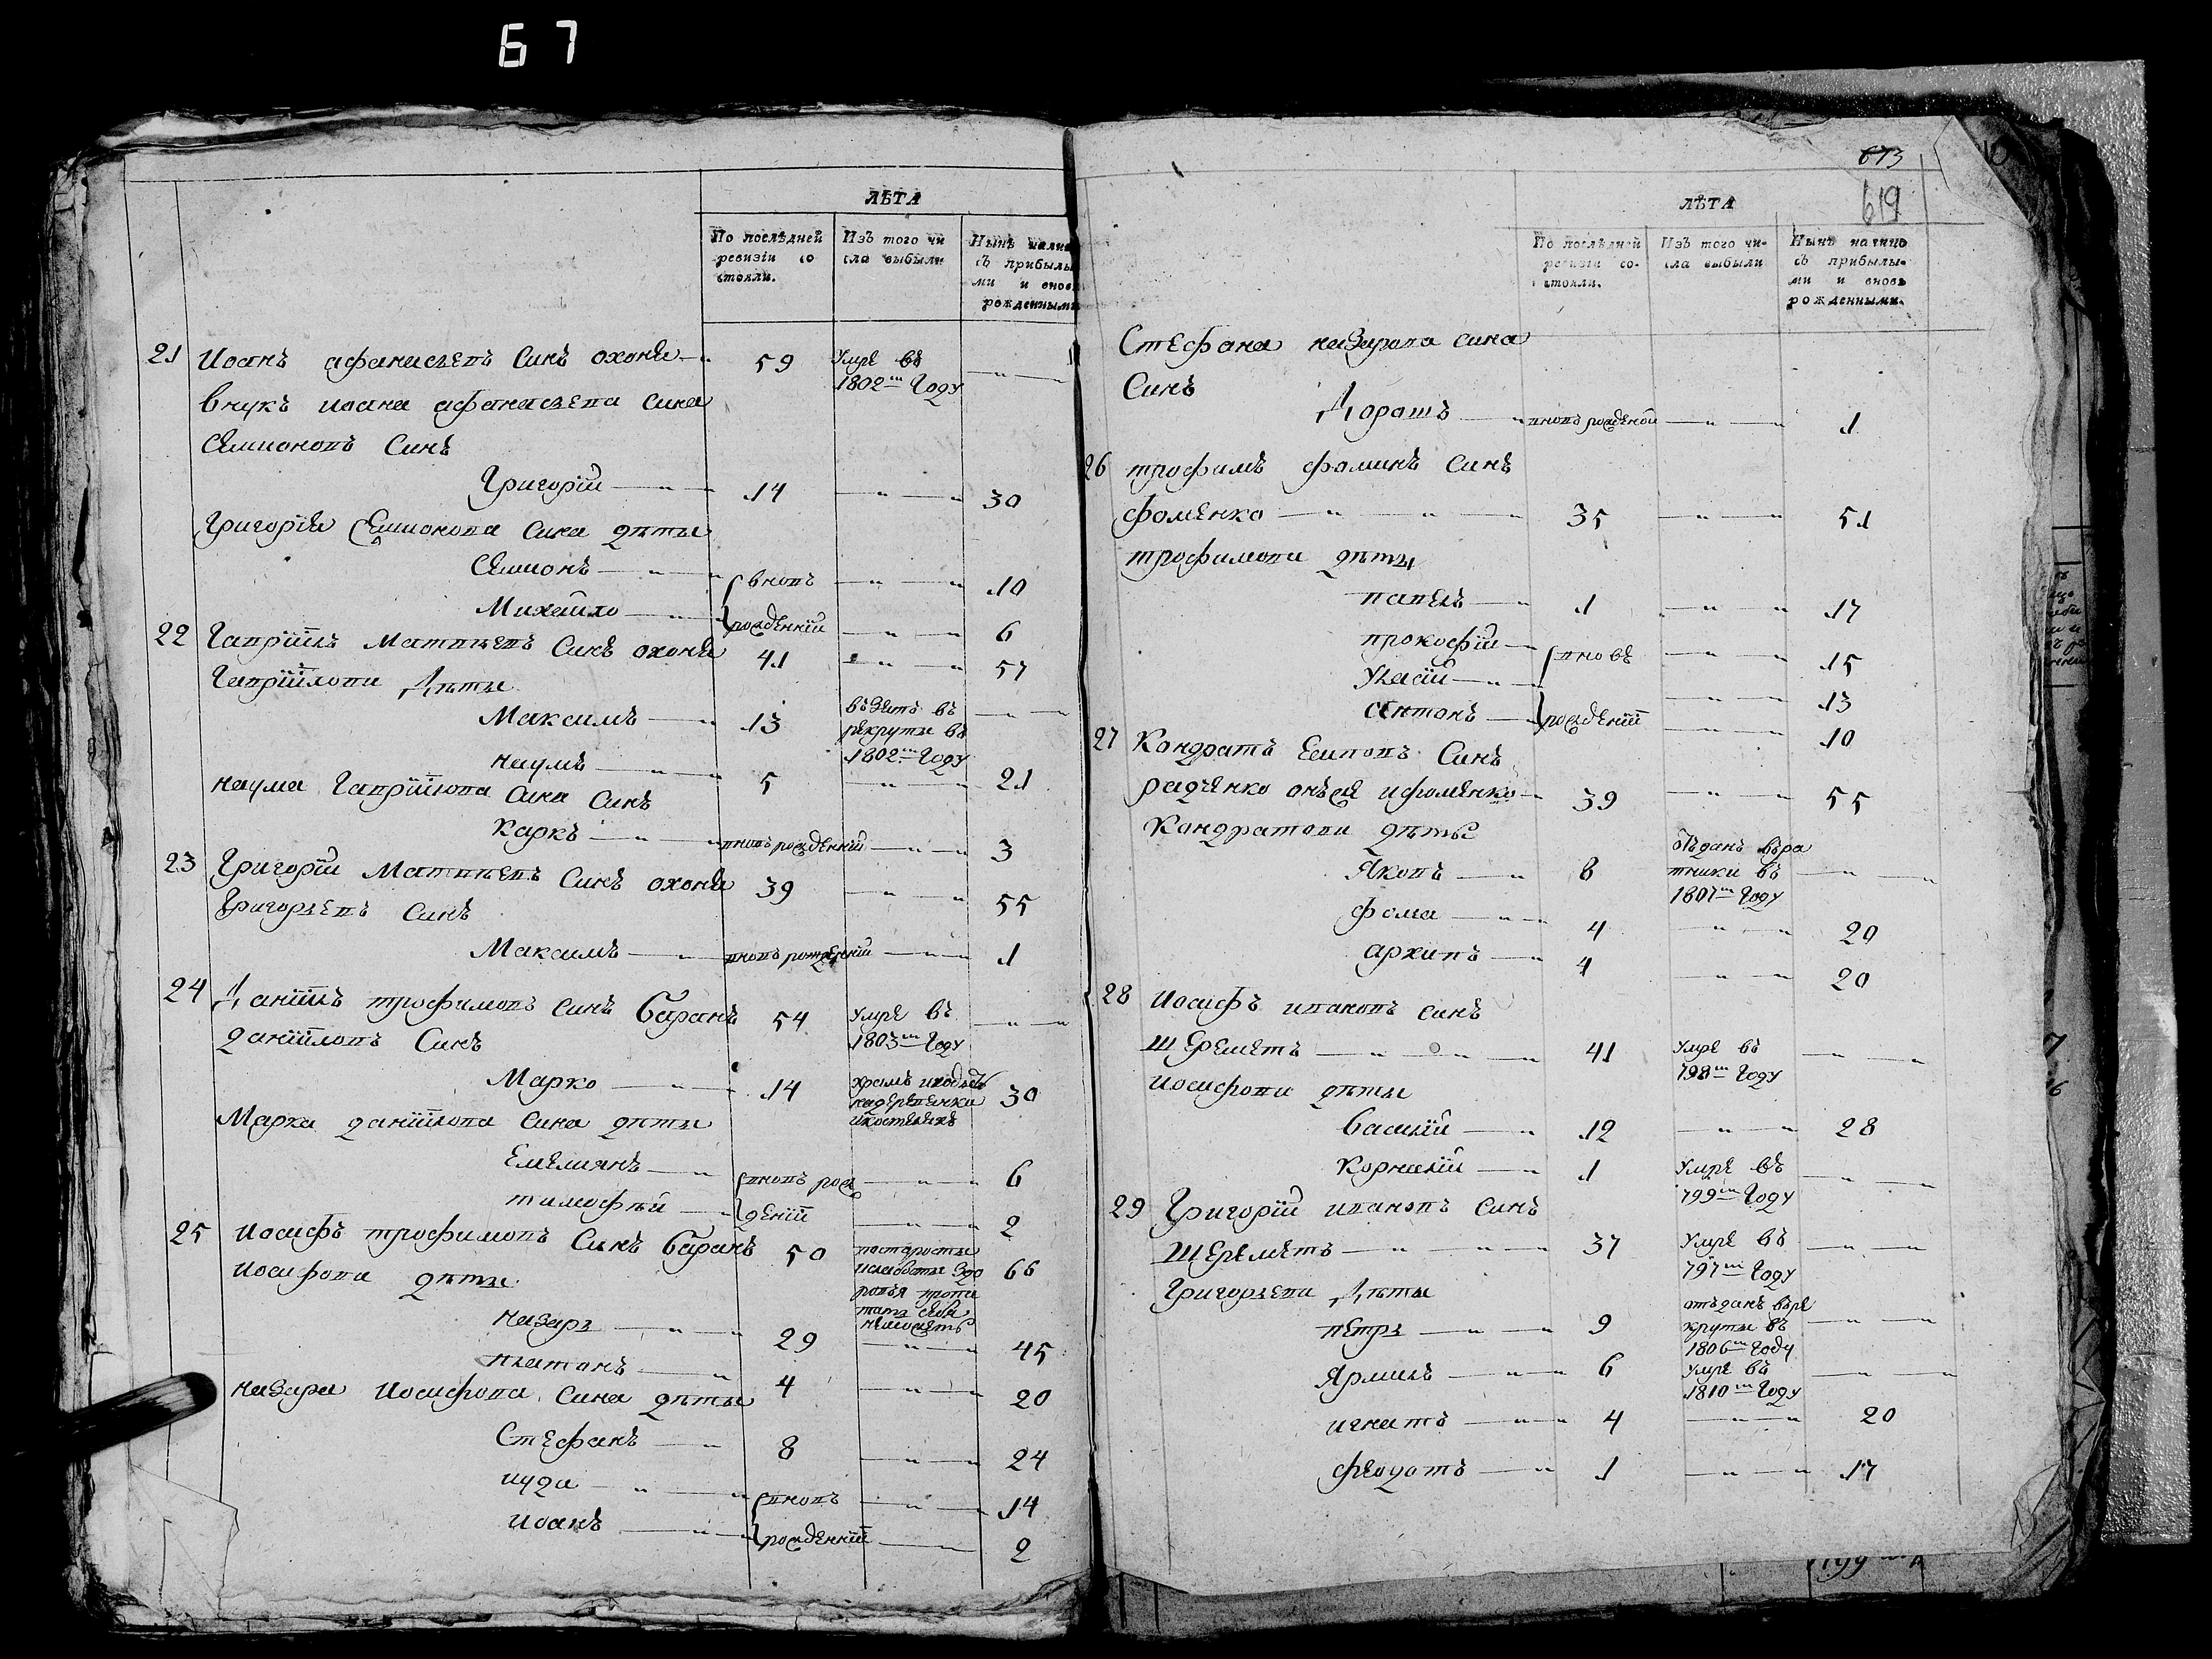 67
ЛѢТА
По послѣдней ревизіи состояли.
Изъ того числа выбыли
Нынѣ налицо съ прибылыми и вновь рожденными
21 Иоанъ афанасьевъ Синъ охоня 59 Умре въ 1802м Году
внукъ иоана афанасьева Сина
Семионовъ Синъ
Григорій 14 30
Григорія Семионова Сина дѣты
Семионъ вновъ 10
Михайло рожденній 6
22 Гавріилъ Матвѣевъ Синъ охоня 41 57
Гавріилови Дѣты
Максимъ 13 възятъ въ рекруты въ 1802м Году
наумъ 5 21
наума Гавріилова Сина Синъ
Каркъ вновъ рожденній 3
23 Григорій Матвѣевъ Синъ охоня 39 55
Григорьевъ Синъ
Максимъ вновъ рожденній 1
24 Даніилъ трофимовъ Синъ баранъ 54 Умре въ 1803м Году
даніиловъ Синъ
Марко 14 хромъ иходитъ надеревянки 30
Марка даніилова Сина дѣты
Емелиянъ вновъ рож 6
тимофѣй деній 2
25 Иосифъ трофимовъ Синъ баранъ 50 постарости ислабости здоровья пропитать себя неможетъ 66
Иосифови дѣты
назаръ 29 45
платонъ 4 20
назара Иосифова Сина дѣты
Стефанъ 8 24
иуда вновъ 14
иоанъ рожденній 2
673
619
ЛѢТА
По послѣдней ревизіи состояли.
Изъ того числа выбыли
Нынѣ налицо съ прибылыми и вновь рожденными.
Стефана назарова сина
Синъ
Дорошъ вновъ рожденой 1
26 трофимъ фоминъ Синъ
фоменко 35 51
трофимови дѣты
павелъ 1 17
прокофій вновъ 15
Уласій 13
антонъ рожденій 10
27 Кондратъ Еиповъ Синъ
радченко онъже ифоменко 39 55
Кондратови дѣты
Яковъ 8 отъданъ вѣратники въ 1807м Году
фома 4 20
архипъ 4 20
28 Иосифъ ивановъ синъ
шереметъ 41 Умре въ 798м Году
иосифови дѣты
василій 12 28
корнилій 1 Умре въ 799м Году
29 Григорій ивановъ Синъ
шереметъ 37 Умре въ 797м Году
Григорьеви Дѣты
петръ 9 отъданъ върекруты въ 1806м Году
Ярмилъ 6 Умре въ 1810м Году
игнатъ 4 20
феодотъ 1 17